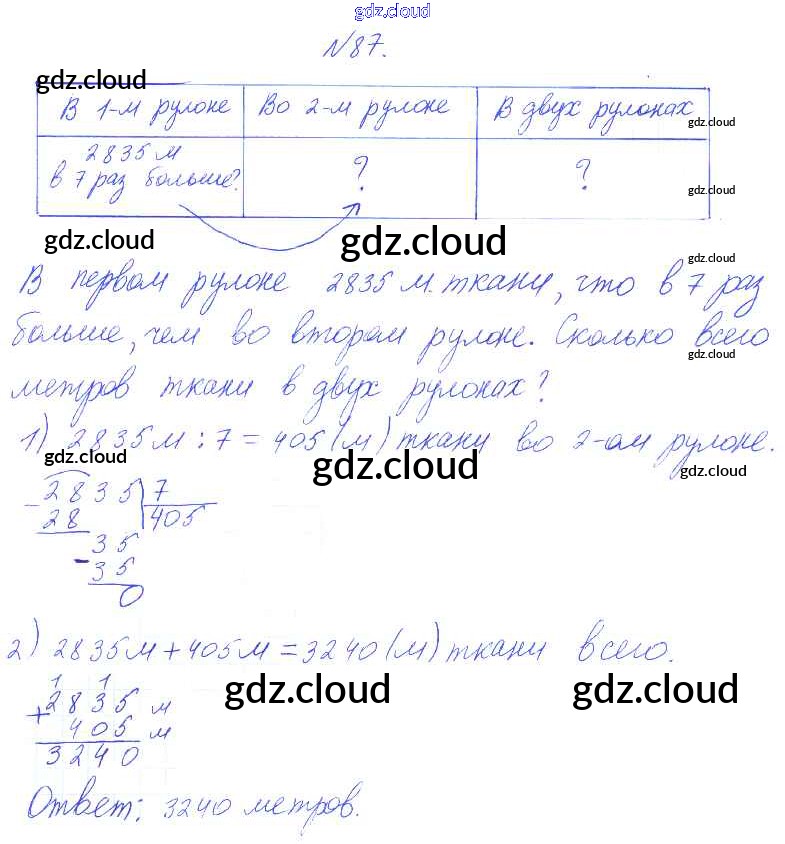 gdz.cloud
№87.
gdz.cloud
В 1-м рулоне Во 2-м рулоне В двух рулонах gdz.cloud
2835 м
в 7 раз больше? ? ? gdz.cloud
gdz.cloud gdz.cloud gdz.cloud
В первом рулоне 2835 м. ткани, что в 7 раз
больше, чем во втором рулоне. Сколько всего
gdz.cloud
метров ткани в двух рулонах?
1) 2835 м : 7 = 405 (м) ткани во 2-ом рулоне.
gdz.cloud gdz.cloud gdz.cloud
- 2835 7
28 405
35
- 35
0
2) 2835 м + 405 м = 3240 (м) ткани всего.
1 1
gdz.cloud gdz.cloud
2835 м
+ 405 м
3240
Ответ: 3240 метров.
gdz.cloud